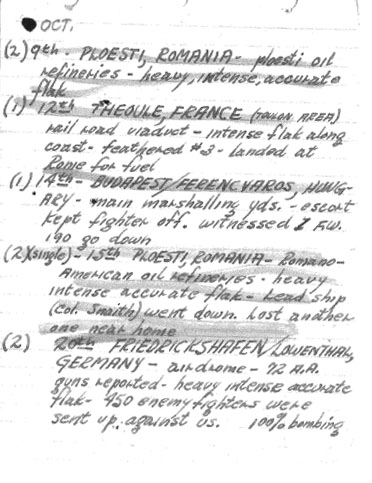 OCT.
(2) 9th - PLOESTI, ROMANIA - ploesti oil
refineries - heavy, intense, accurate
flak
(1) 12th THEOULE, FRANCE (TOULON AREA)
rail road viaduct - intense flak along
coast - feathered #3 - landed at
Rome for fuel
(1) 14th - BUDAPEST, FERENCVAROS, HUNG-
ARY - main marshalling yds. - escort
kept fighter off. witnessed 1 F.W.
190 go down
(2)(single) - 15th PLOESTI, ROMANIA - Romano-
American oil refineries - heavy
intense accurate flak - Lead ship
(Col. Smaith) went down. Lost another
one near home
(2) 20th FRIEDRICKSHAFEN/LOWENTHAL,
GERMANY - airdrome - 72 A.A.
guns reported - heavy intense accurate
flak - 450 enemy fighters were
sent up against us. 100% bombing